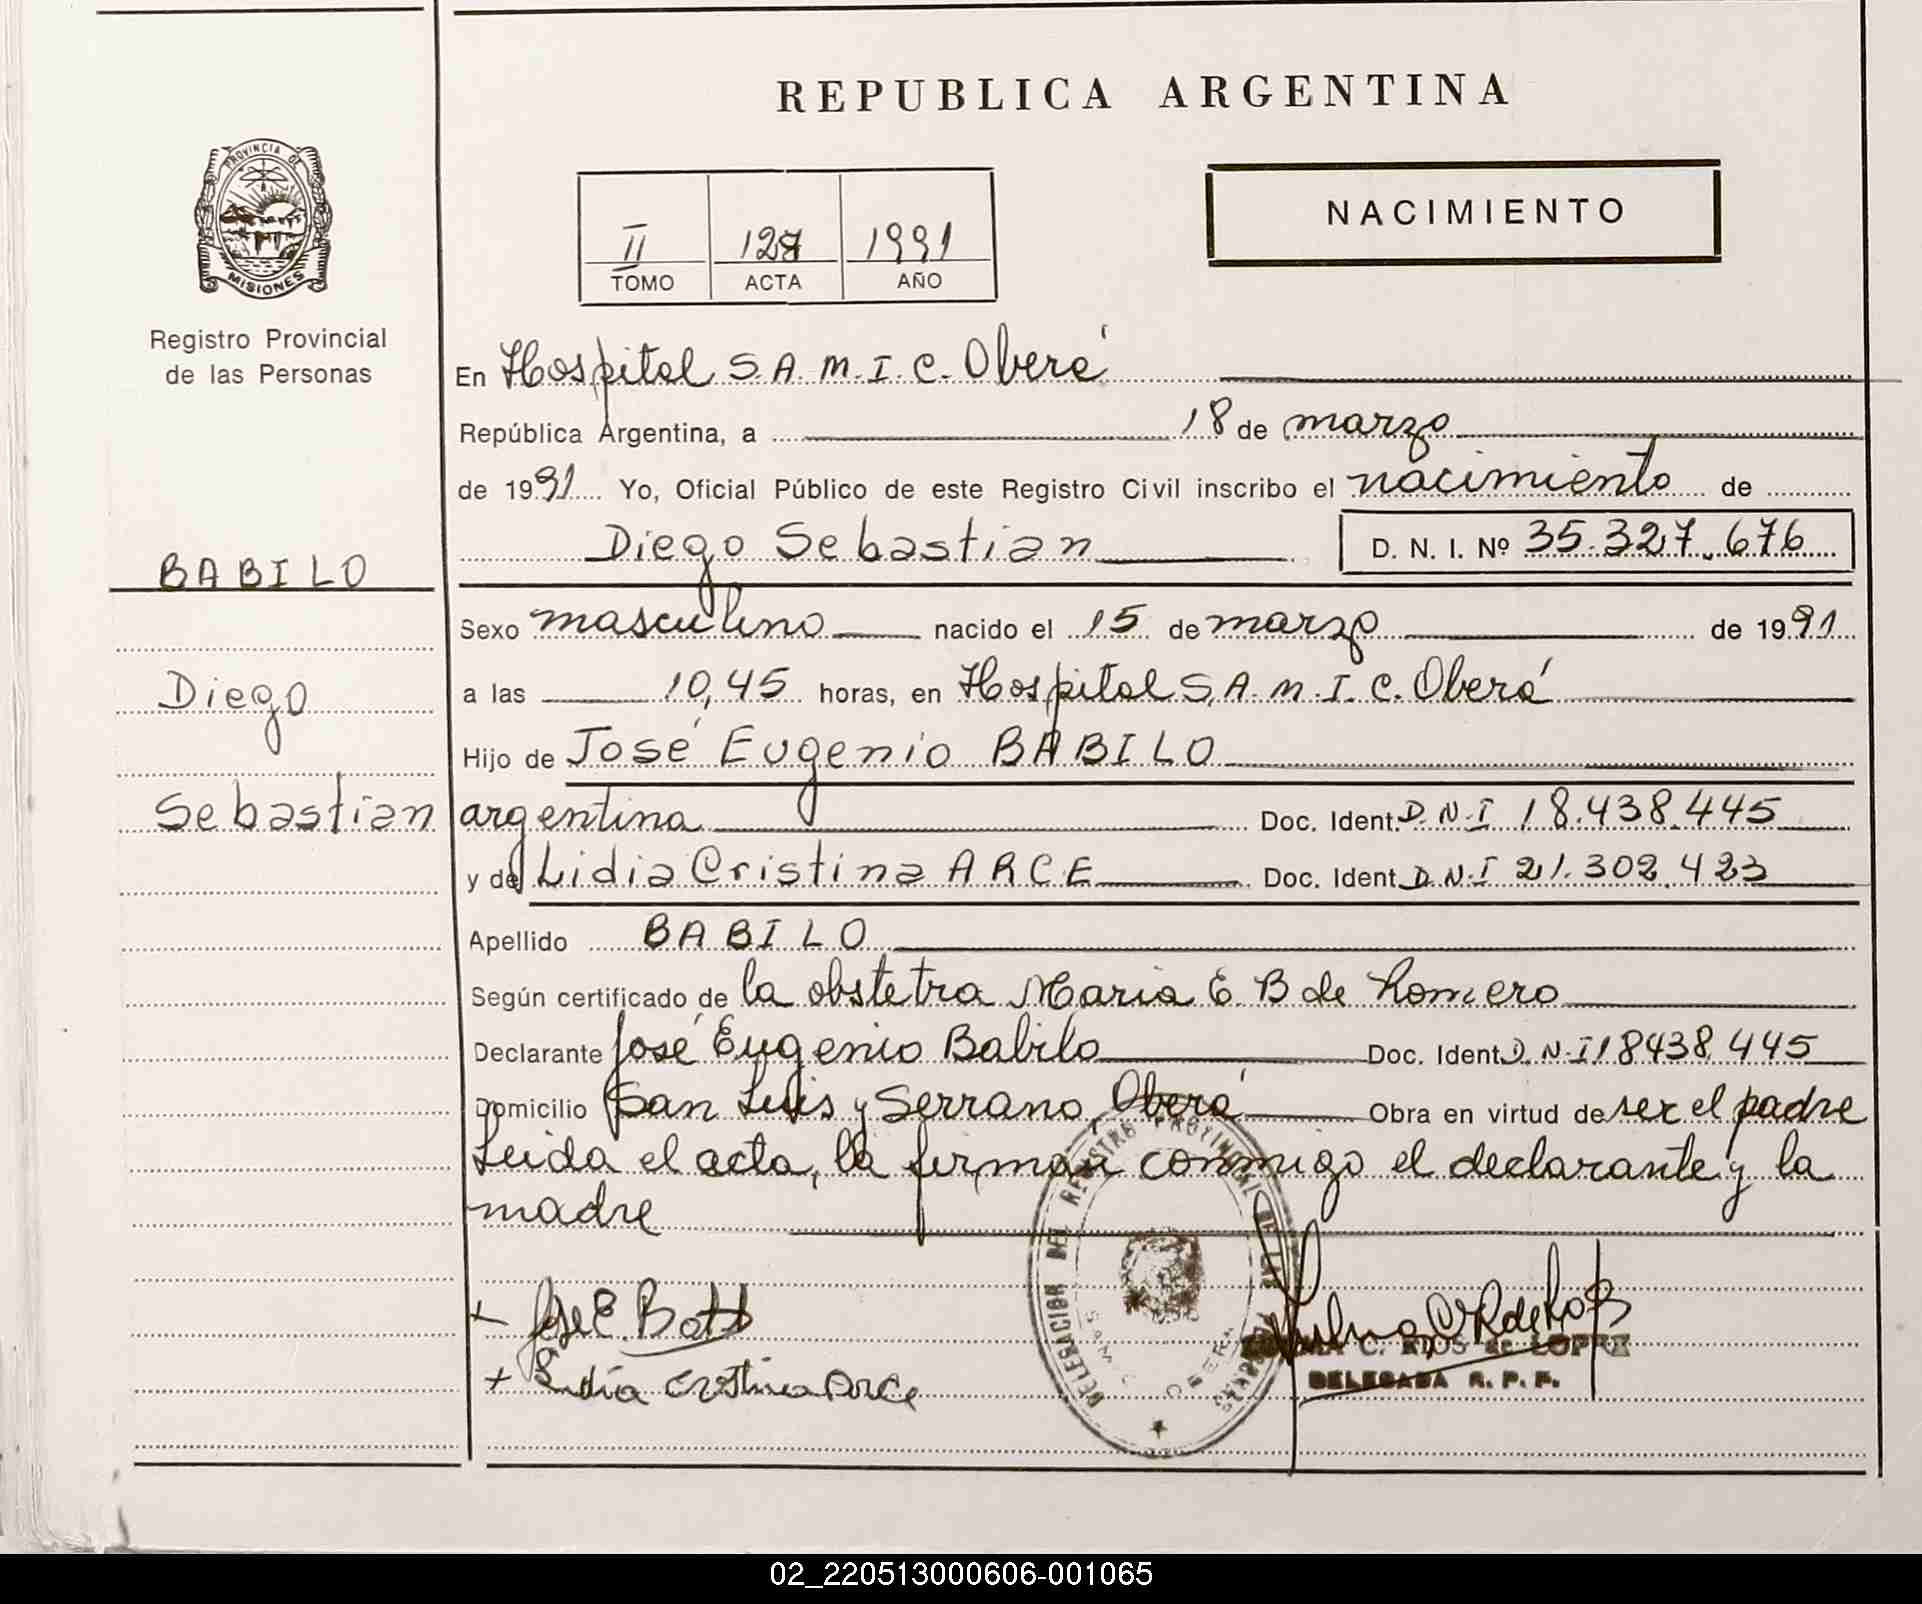 REPUBLICA ARGENTINA
PROVINCIA DE
MISIONES
Registro Provincial
de las Personas
II 1991
TOMO ACTA AÑO
NACIMIENTO
En Hospital S.A.M.I.C. Oberá
República Argentina, a 18 de marzo
de 1991 Yo, Oficial Público de este Registro Civil inscribo el nacimiento de
Diego Sebastian D. N. I. Nº 35.327.676
BABILO
Sexo masculino nacido el 15 de marzo de 1991
Diego
a las 10,45 horas, en Hospital S.A.M.I.C. Oberá
Hijo de José Eugenio BABILO
Sebastian
argentina Doc. Ident. D.N.I 18.438.445
y de Lidia Cristina ARCE Doc. Ident. D.N.I 21.302.423
Apellido BABILO
Según certificado de la obstetra Maria E. B de Romero
Declarante José Eugenio Babilo Doc. Ident. D.N.I 18438.445
Domicilio San Luis y Serrano Oberá Obra en virtud de ser el padre
Leida el acta, la firman conmigo el declarante y la
madre
DELEGACION DEL REGISTRO PROVINCIAL DE LAS
+ José E.
+ Lidia Cristina Arce
C. RIOS de LOPEZ
DELEGADA R. P. P.
02_220513000606-001065